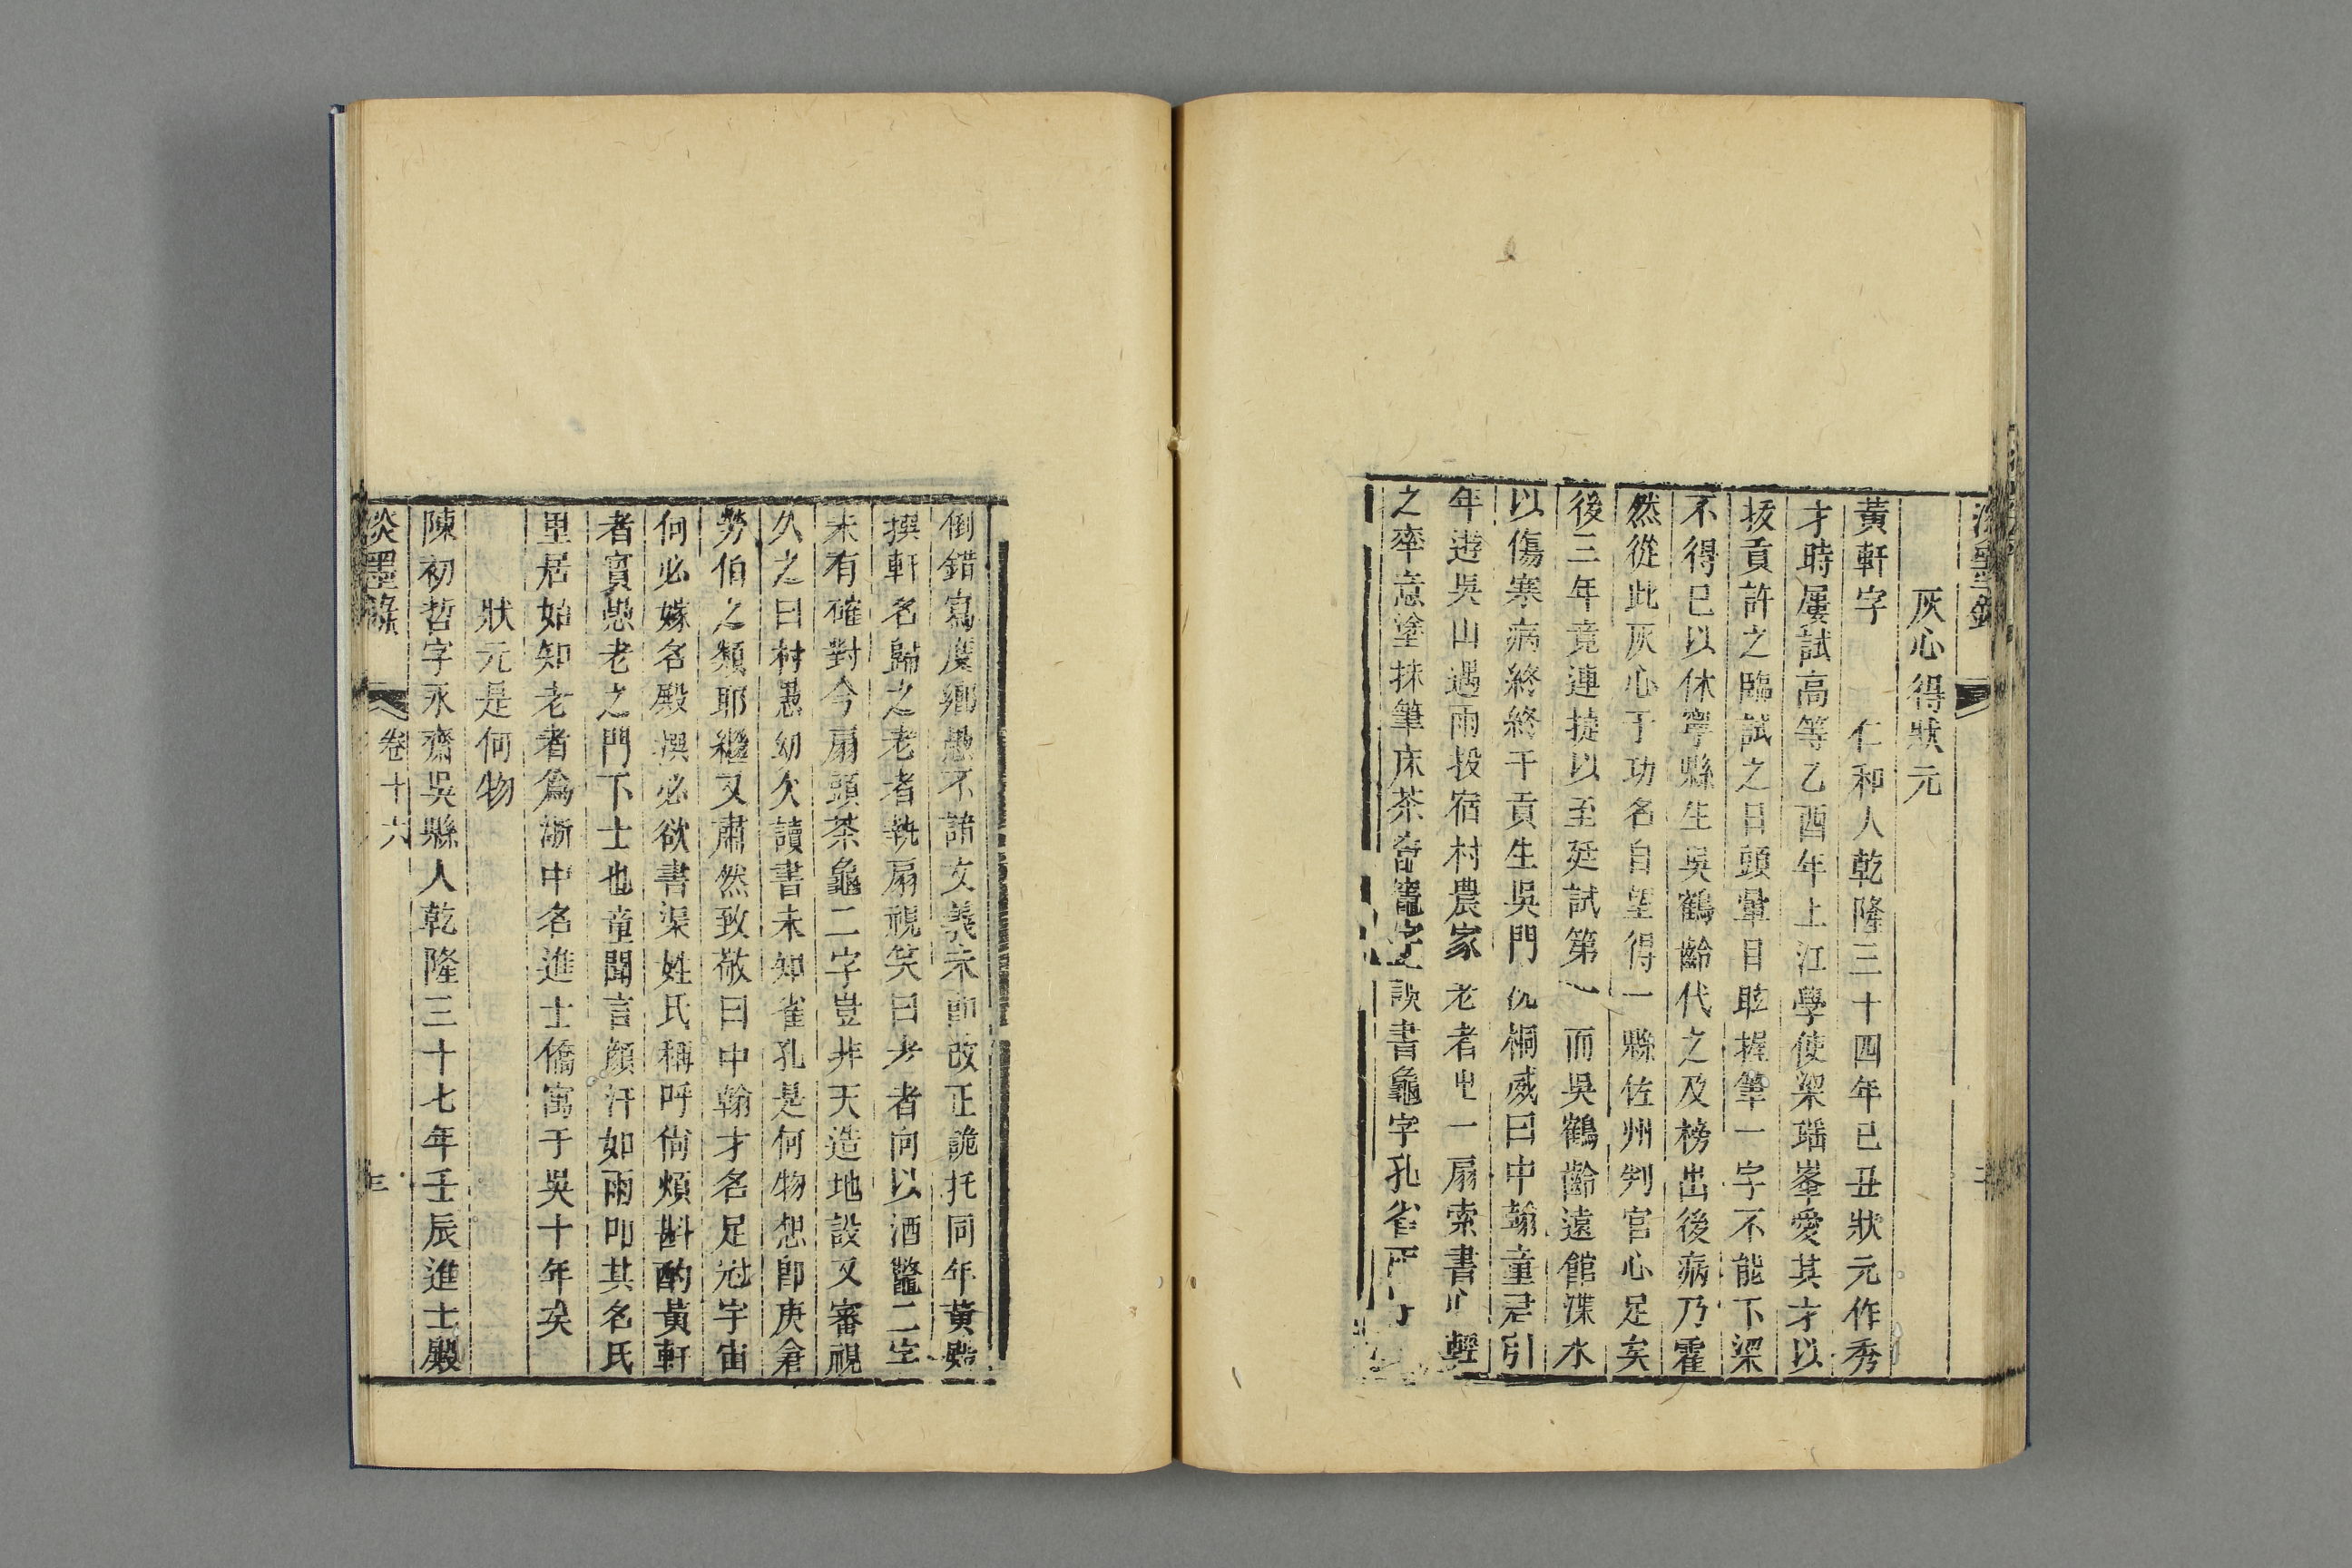 淡墨錄
灰心得狀元
黃軒字 仁和人乾隆三十四年己丑狀元作秀
才時屢試高等乙酉年上江學使梁瑶峯愛其才以
拔貢許之臨試之日頭暈目眩握筆一字不能下梁
不得已以休寧縣生吳鶴齡代之及榜出後病乃霍
然從此灰心于功名自望得一縣佐州判官心足矣
後三年竟連捷以至廷試第一而吳鶴齡遠館溧水
以傷寒病終終于貢生吳門沈桐威曰中翰童君引
年遊吳山遇雨投宿村農家老者出一扇索書心輕
之率意塗抹筆床茶竈竈字誤書龜字孔雀
倒錯寫廋鄉愚不諳文義未即改正詭托同年黃殿
撰軒名歸之老者執扇視笑曰老者向以酒鼈二字
未有確對今扇頭茶龜二字豈非天造地設又審視
久之曰村愚幼欠讀書未知雀孔是何物想卽庚倉
勞伯之類耶繼又肅然致敬曰中翰才名足冠宇宙
何必嫁名殿撰必欲書渠姓氏稱呼尙煩斟酌黃軒
者實愚老之門下士也童聞言顏汗如雨叩其名氏
里居始知老者爲浙中名進士僑寓于吳十年矣
狀元是何物
陳初哲字永齋吳縣人乾隆三十七年壬辰進士殿
淡墨錄 卷十六 三